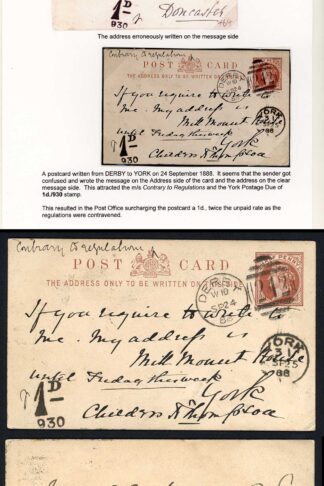 1D
930
Doncaster
The address erroneously written on the message side
Contrary to regulations
POST CARD
THE ADDRESS ONLY TO BE WRITTEN ON
DERBY
W10
SP 24
88
If you require to write to
me. My address is
Mill Mount
until Friday this week
York
1D
930
YORK
88
A postcard written from DERBY to YORK on 24 September 1888. It seems that the sender got
confused and wrote the message on the Address side of the card and the address on the clear
message side. This attracted the m/s Contrary to Regulations and the York Postage Due of
1d./930 stamp.
This resulted in the Post Office surcharging the postcard a 1d., twice the unpaid rate as the
regulations were contravened.
Contrary to regulations
POST CARD
THE ADDRESS ONLY TO BE WRITTEN ON
DERBY
W10
SP 24
88
If you require to write to
me. My address is
Mill Mount
until Friday this week
York
1D
930
YORK
SP 25
88